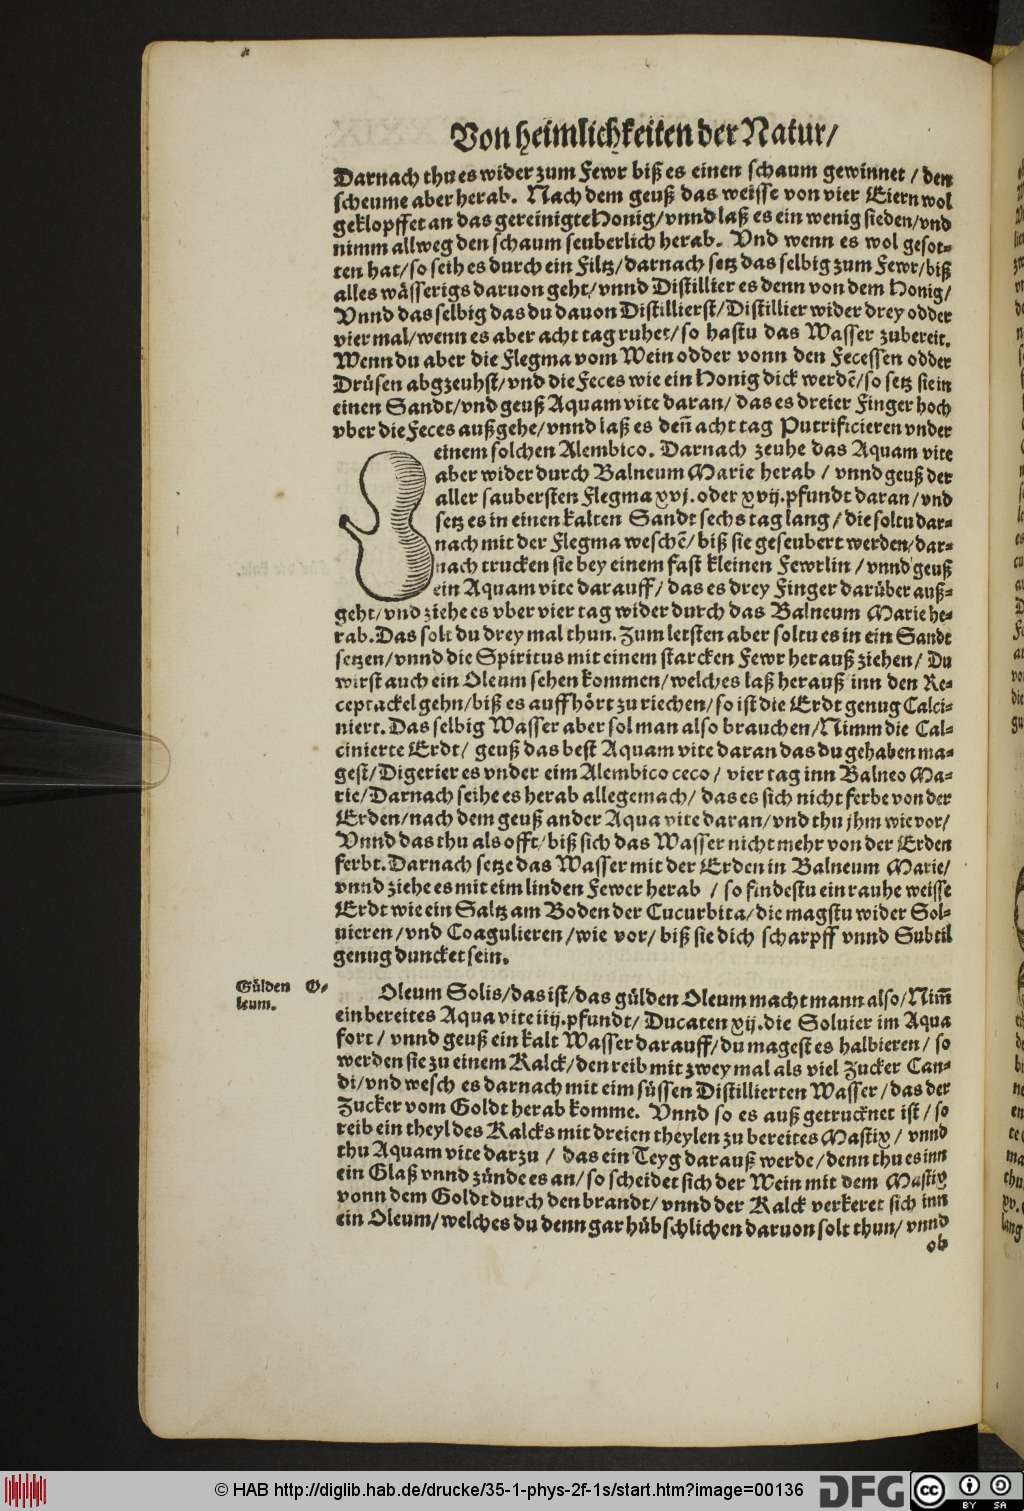 Von heimlichkeiten der Natur/
Darnach thu es wider zum Fewr biß es einen schaum gewinnet / den
scheume aber herab. Nach dem geuß das weisse von vier Eiern wol
geklopffet an das gereinigte Honig/vnnd laß es ein wenig sieden/vnd
nimm allweg den schaum seuberlich herab. Vnd wenn es wol gesot-
ten hat/so seih es durch ein Filtz/darnach setz das selbig zum Fewr/biß
alles wässerigs daruon geht/vnnd Distillier es denn von dem Honig/
Vnnd das selbig das du dauon Distillierst/Distillier wider drey odder
vier mal/wenn es aber acht tag ruhet/so hastu das Wasser zubereit.
Wenn du aber die Flegma vom Wein odder vonn den Fecessen odder
Drüsen abgzeuhst/vnd die Feces wie ein Honig dick werdē/so setz sie in
einen Sandt/vnd geuß Aquam vite daran/ das es dreier Finger hoch
vber die Feces außgehe/vnnd laß es deñ acht tag Putrificieren vnder
einem solchen Alembico. Darnach zeuhe das Aquam vite
aber wider durch Balneum Marie herab / vnnd geuß der
aller saubersten Flegma xvj. oder xvij.pfundt daran/vnd
setz es in einen kalten Sandt sechs tag lang/die soltu dar-
nach mit der Flegma weschē/biß sie geseubert werden/dar-
nach trucken sie bey einem fast kleinen Fewrlin /vnnd geuß
ein Aquam vite darauff/das es drey Finger darüber auß-
geht/vnd ziehe es vber vier tag wider durch das Balneum Marie he-
rab. Das solt du drey mal thun. Zum letsten aber soltu es in ein Sandt
setzen/vnnd die Spiritus mit einem starcken Fewr herauß ziehen/ Du
wirst auch ein Oleum sehen kommen/welches laß herauß inn den Re-
ceptackel gehn/biß es auffhört zu riechen/so ist die Erdt genug Calci-
niert. Das selbig Wasser aber sol man also brauchen/Nimm die Cal-
cinierte Erdt/ geuß das best Aquam vite daran das du gehaben ma-
gest/Digerier es vnder eim Alembico ceco / vier tag inn Balneo Ma-
rie/Darnach seihe es herab allegemach/ das es sich nicht ferbe von der
Erden/nach dem geuß ander Aqua vite daran/vnd thu jhm wie vor/
Vnnd das thu als offt/biß sich das Wasser nicht mehr von der Erden
ferbt. Darnach setze das Wasser mit der Erden in Balneum Marie/
vnnd ziehe es mit eim linden Fewer herab / so findestu ein rauhe weisse
Erdt wie ein Saltz am Boden der Cucurbita/die magstu wider Sol-
uieren/vnd Coagulieren/wie vor/ biß sie dich scharpff vnnd Subtil
genug duncket sein.
Gülden O-
leum.
Oleum Solis/das ist/das gülden Oleum macht mann also/Nim̃
ein bereites Aqua vite iiij.pfundt/ Ducaten xij.die Soluier im Aqua
fort/ vnnd geuß ein kalt Wasser darauff/du magest es halbieren/ so
werden sie zu einem Kalck/den reib mit zwey mal als viel Zucker Can-
di/vnd wesch es darnach mit eim süssen Distillierten Wasser/das der
Zucker vom Goldt herab komme. Vnnd so es auß getrucknet ist/so
reib ein theyl des Kalcks mit dreien theylen zu bereites Mastix/ vnnd
thu Aquam vite darzu / das ein Teyg darauß werde/denn thu es inn
ein Glaß vnnd zünde es an/so scheidet sich der Wein mit dem Mastix
vonn dem Goldt durch den brandt/vnnd der Kalck verkeret sich inn
ein Oleum/welches du denn gar hübschlichen daruon solt thun/ vnnd
ob
© HAB http://diglib.hab.de/drucke/35-1-phys-2f-1s/start.htm?image=00136
DFG
cc BY SA